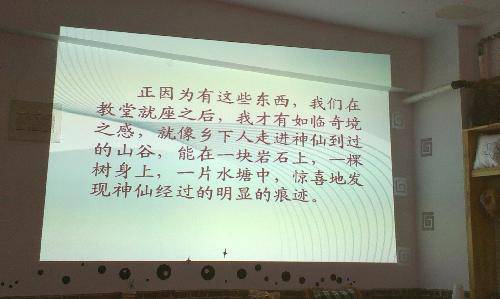 正因为有这些东西，我们在
教堂就座之后，我才有如临奇境
之感，就像乡下人走进神仙到过
的山谷，能在一块岩石上，一棵
树身上，一片水塘中，惊喜地发
现神仙经过的明显的痕迹。